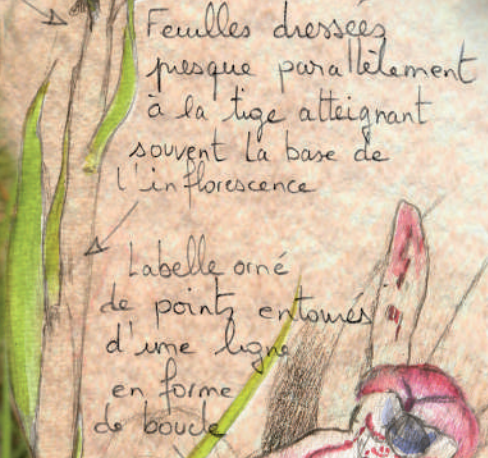 Feuilles dressées
presque parallèlement
à la tige atteignant
souvent la base de
l'inflorescence
Labelle orné
de points entourés
d'une ligne
en forme
de boucle